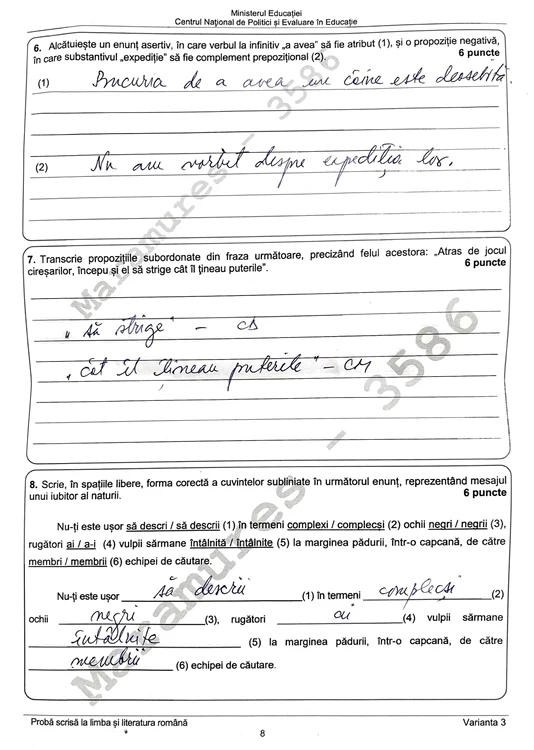 Ministerul Educației
Centrul Național de Politici și Evaluare în Educație
6. Alcătuiește un enunț asertiv, în care verbul la infinitiv „a avea” să fie atribut (1), și o propoziție negativă,
în care substantivul „expediție” să fie complement prepozițional (2). 6 puncte
(1) Bucuria de a avea un câine este deosebită.
(2) Nu am vorbit despre expediția lor.
7. Transcrie propozițiile subordonate din fraza următoare, precizând felul acestora: „Atras de jocul
cireșarilor, începu și el să strige cât îl țineau puterile”. 6 puncte
„să strige” – CD
„cât îl țineau puterile” – CM
8. Scrie, în spațiile libere, forma corectă a cuvintelor subliniate în următorul enunț, reprezentând mesajul
unui iubitor al naturii. 6 puncte
Nu-ți este ușor să descri / să descrii (1) în termeni complexi / complecși (2) ochii negri / negrii (3),
rugători ai / a-i (4) vulpii sărmane întâlnită / întâlnite (5) la marginea pădurii, într-o capcană, de către
membri / membrii (6) echipei de căutare.
Nu-ți este ușor să descrii (1) în termeni complecși (2)
ochii negri (3), rugători ai (4) vulpii sărmane
întâlnite (5) la marginea pădurii, într-o capcană, de către
membrii (6) echipei de căutare.
Maramures – 3586
Maramures – 3586
Probă scrisă la limba și literatura română Varianta 3
8